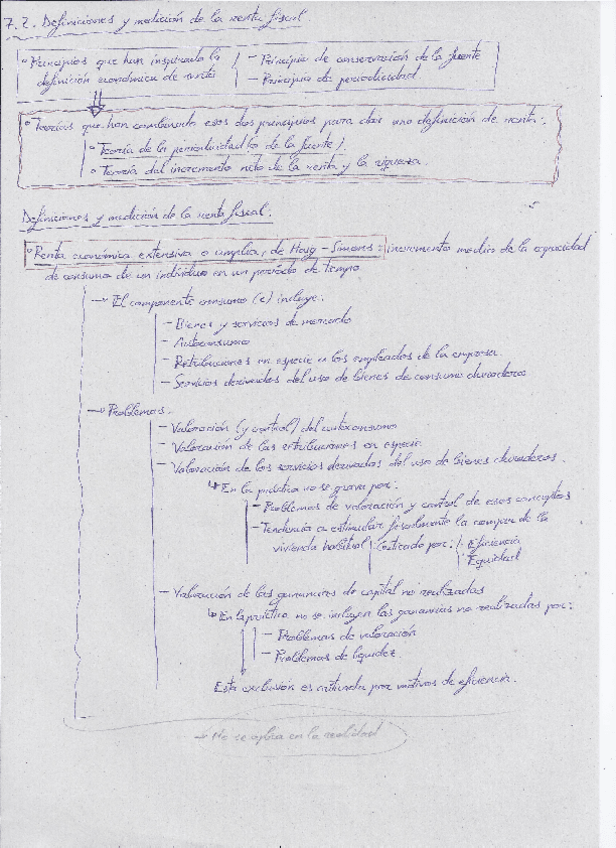 7.2. Definiciones y medición de la renta fiscal.
• Principios que han inspirado la definición económica de renta
- Principio de conservación de la fuente
- Principio de periodicidad
• Teorías que han combinado esos dos principios para dar una definición de renta:
• Teoría de la periodicidad (o de la fuente).
• Teoría del incremento neto de la renta y la riqueza.
Definiciones y medición de la renta fiscal:
• Renta económica extensiva o amplia, de Haig-Simons: incremento medio de la capacidad
de consumo de un individuo en un período de tiempo
→ El componente consumo (c) incluye:
- Bienes y servicios de mercado
- Autoconsumo
- Retribuciones en especie a los empleados de la empresa.
- Servicios derivados del uso de bienes de consumo duraderos
→ Problemas:
- Valoración (y control) del autoconsumo
- Valoración de las retribuciones en especie
- Valoración de los servicios derivados del uso de bienes duraderos.
↳ En la práctica no se grava por:
- Problemas de valoración y control de esos conceptos
- Tendencia a estimular fiscalmente la compra de la
vivienda habitual
Criticado por:
- Eficiencia
Equidad
- Valoración de las ganancias de capital no realizadas
↳ En la práctica no se incluyen las ganancias no realizadas por:
- Problemas de valoración
- Problemas de liquidez.
Esta exclusión es criticada por motivos de eficiencia.
→ No se aplica en la realidad